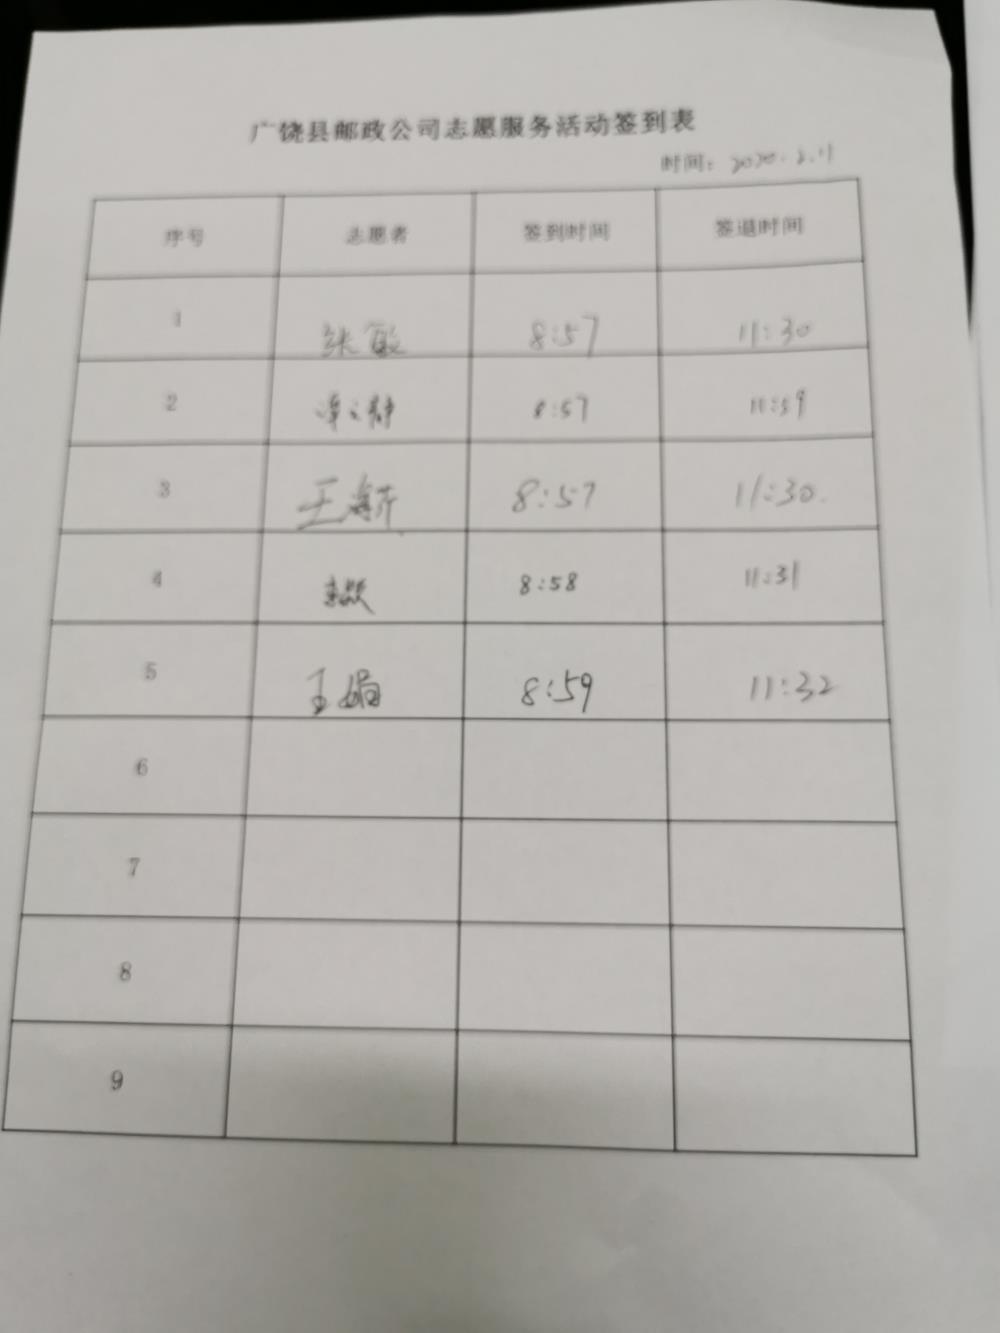 广饶县邮政公司志愿服务活动签到表
时间: 2020.2.11
序号 志愿者 签到时间 签退时间
1 张敏 8:57 11:30
2 8:57 11:59
3 王海芹 8:57 11:30.
4 8:58 11:31
5 王娟 8:59 11:32
6
7
8
9